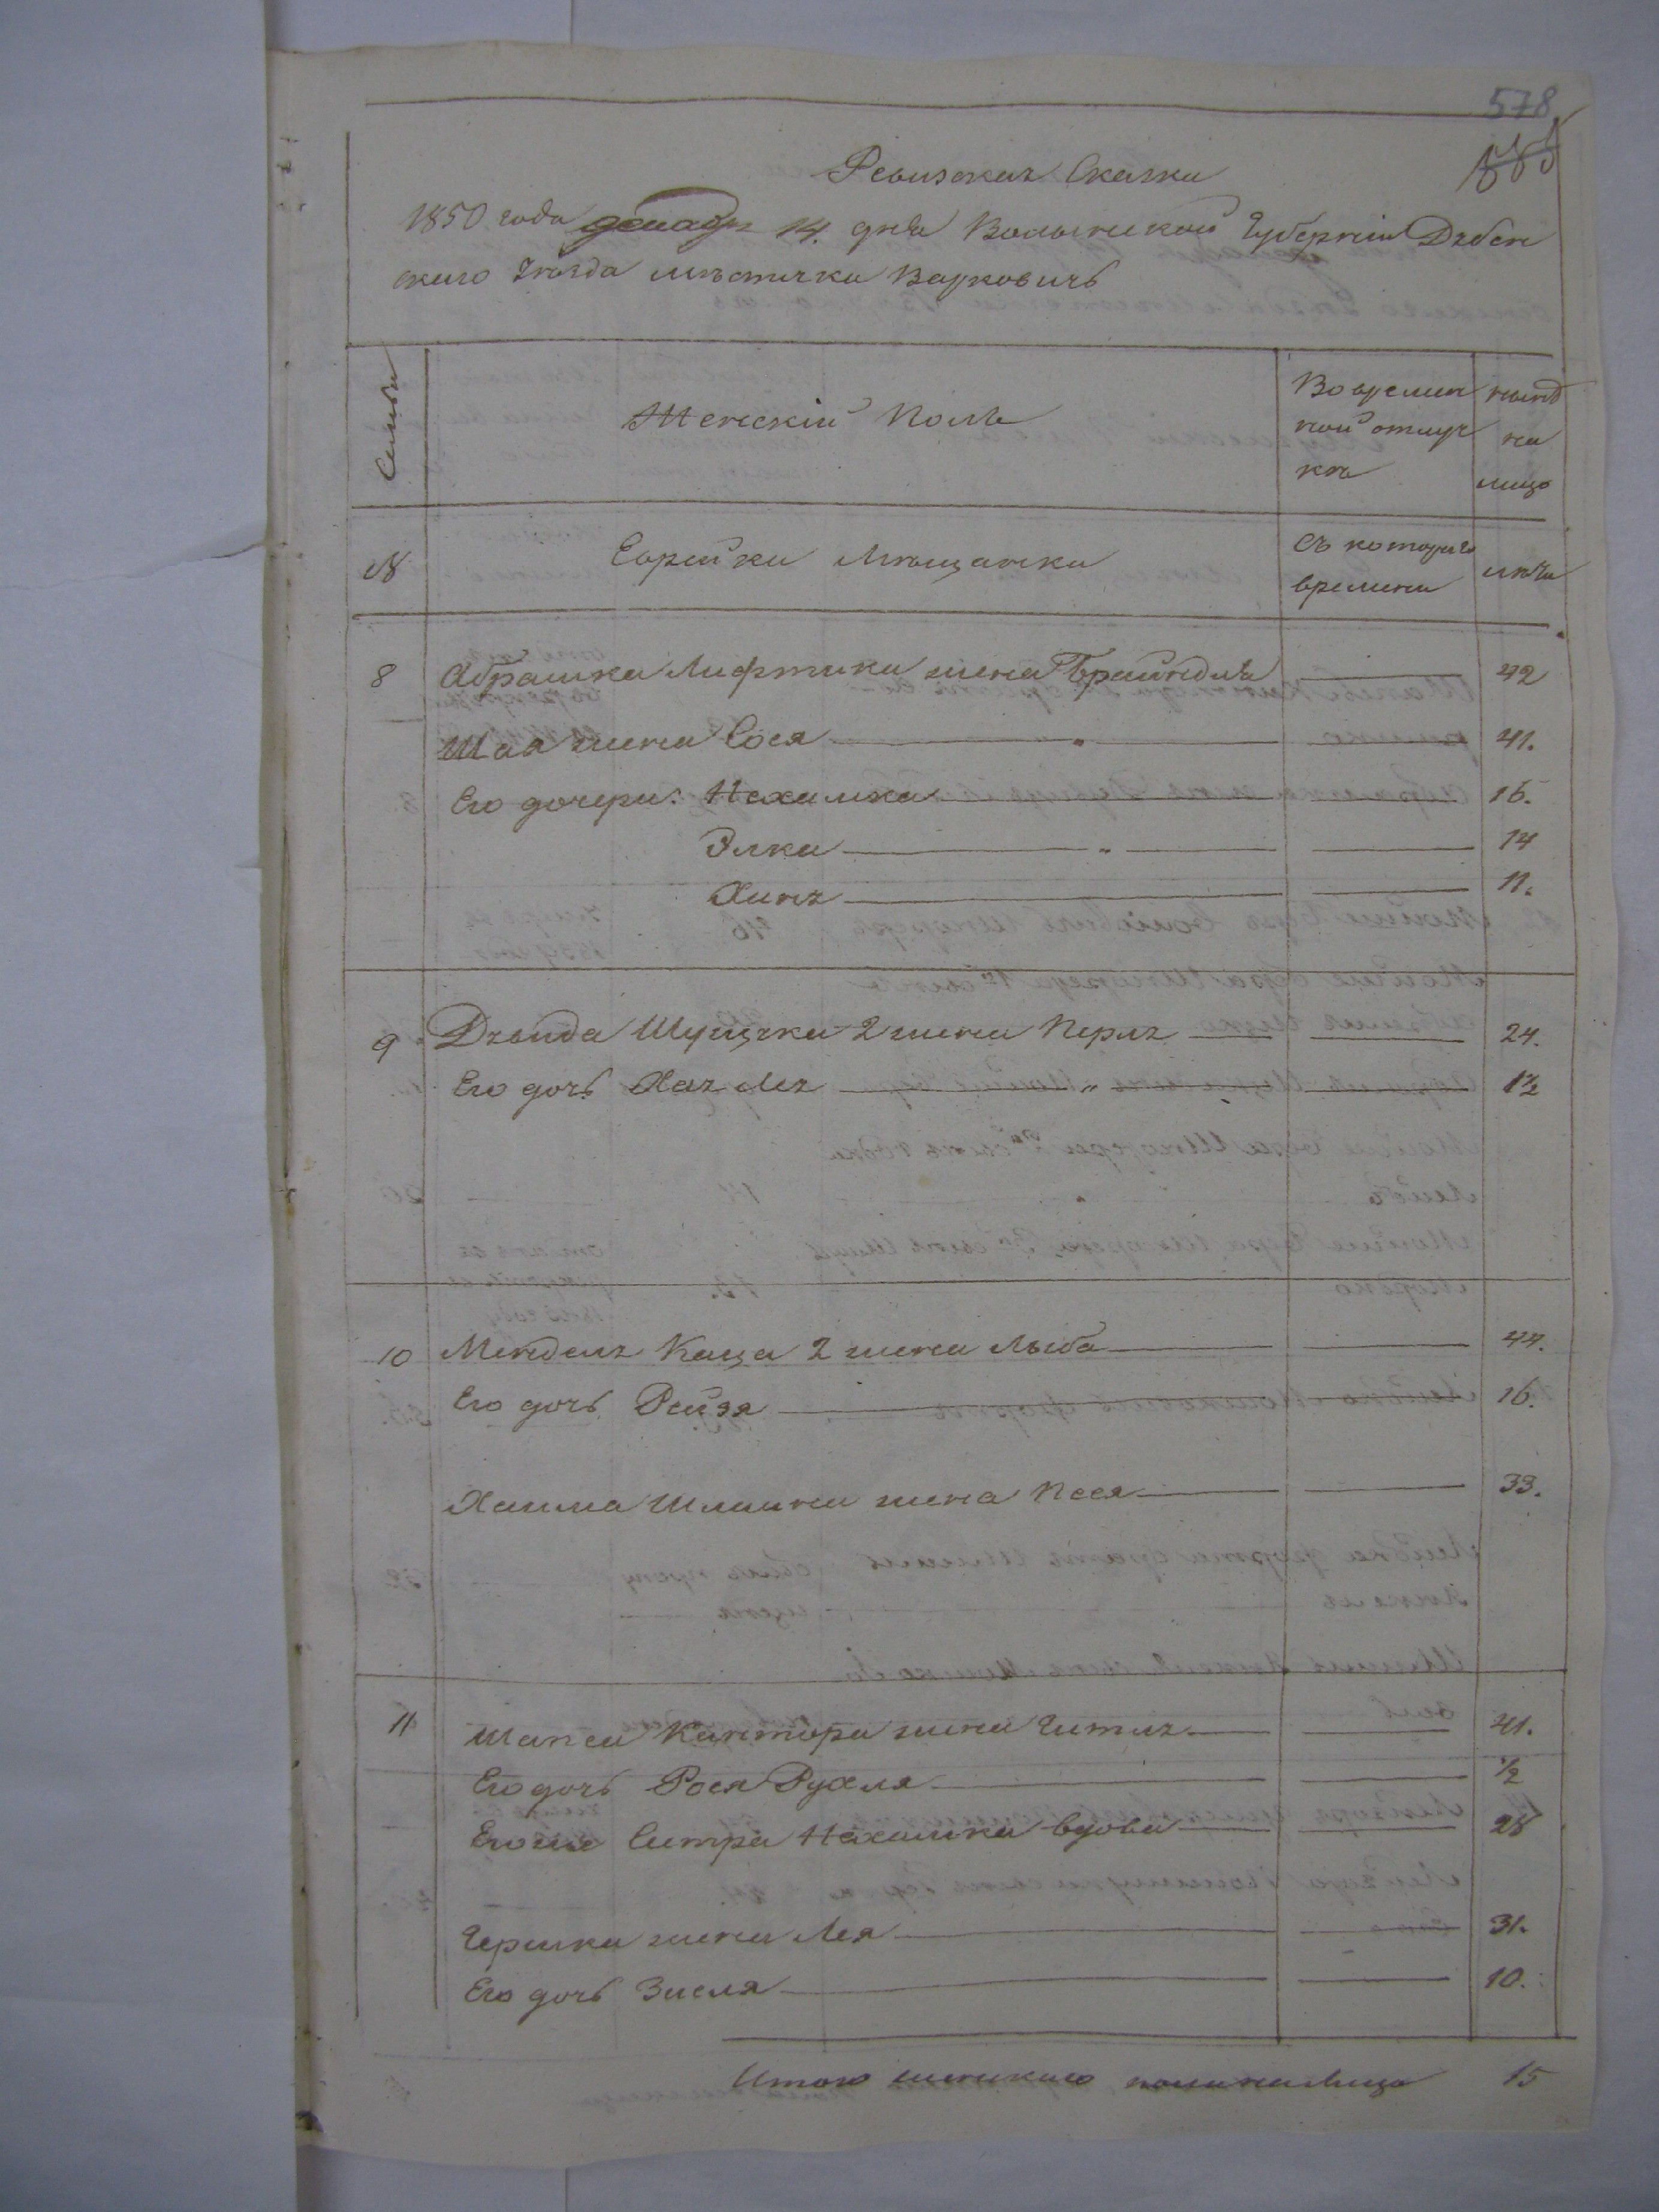 578
Ревизская Сказка
1850 года декабр 14. дня Волынской Губерніи Дубен
скаго Уезда мѣстечка Варковичь
Семьи
Женскій Полъ
Во времян
ной отлуч
кѣ
нынѣ
на
лицо
№
Еврейки Мѣщанки
Съ котораго
времени
лѣта
8 Абрашка Лифтика жена Брайндля 42
Шая жена Сося " 41.
Его дочери: Нехамка 16.
Элка " 14
Хиня 11.
9 Давида Шущка 2 жена Перля 24.
Его дочь Хая Лея " 1½
10 Менделя Каца 2 жена Лыба 44.
Его дочь Рейзя 16.
Хаима Шлиини жена Песя 33.
11 Шапси Кантора жена Гитля 41.
Его дочь Рося Рухля ½
Его же Сестра Нехамка вдова 28
Гершка жена Лея 31.
Его дочь Зисля 10.
Итого женскаго пола на Лицо 15